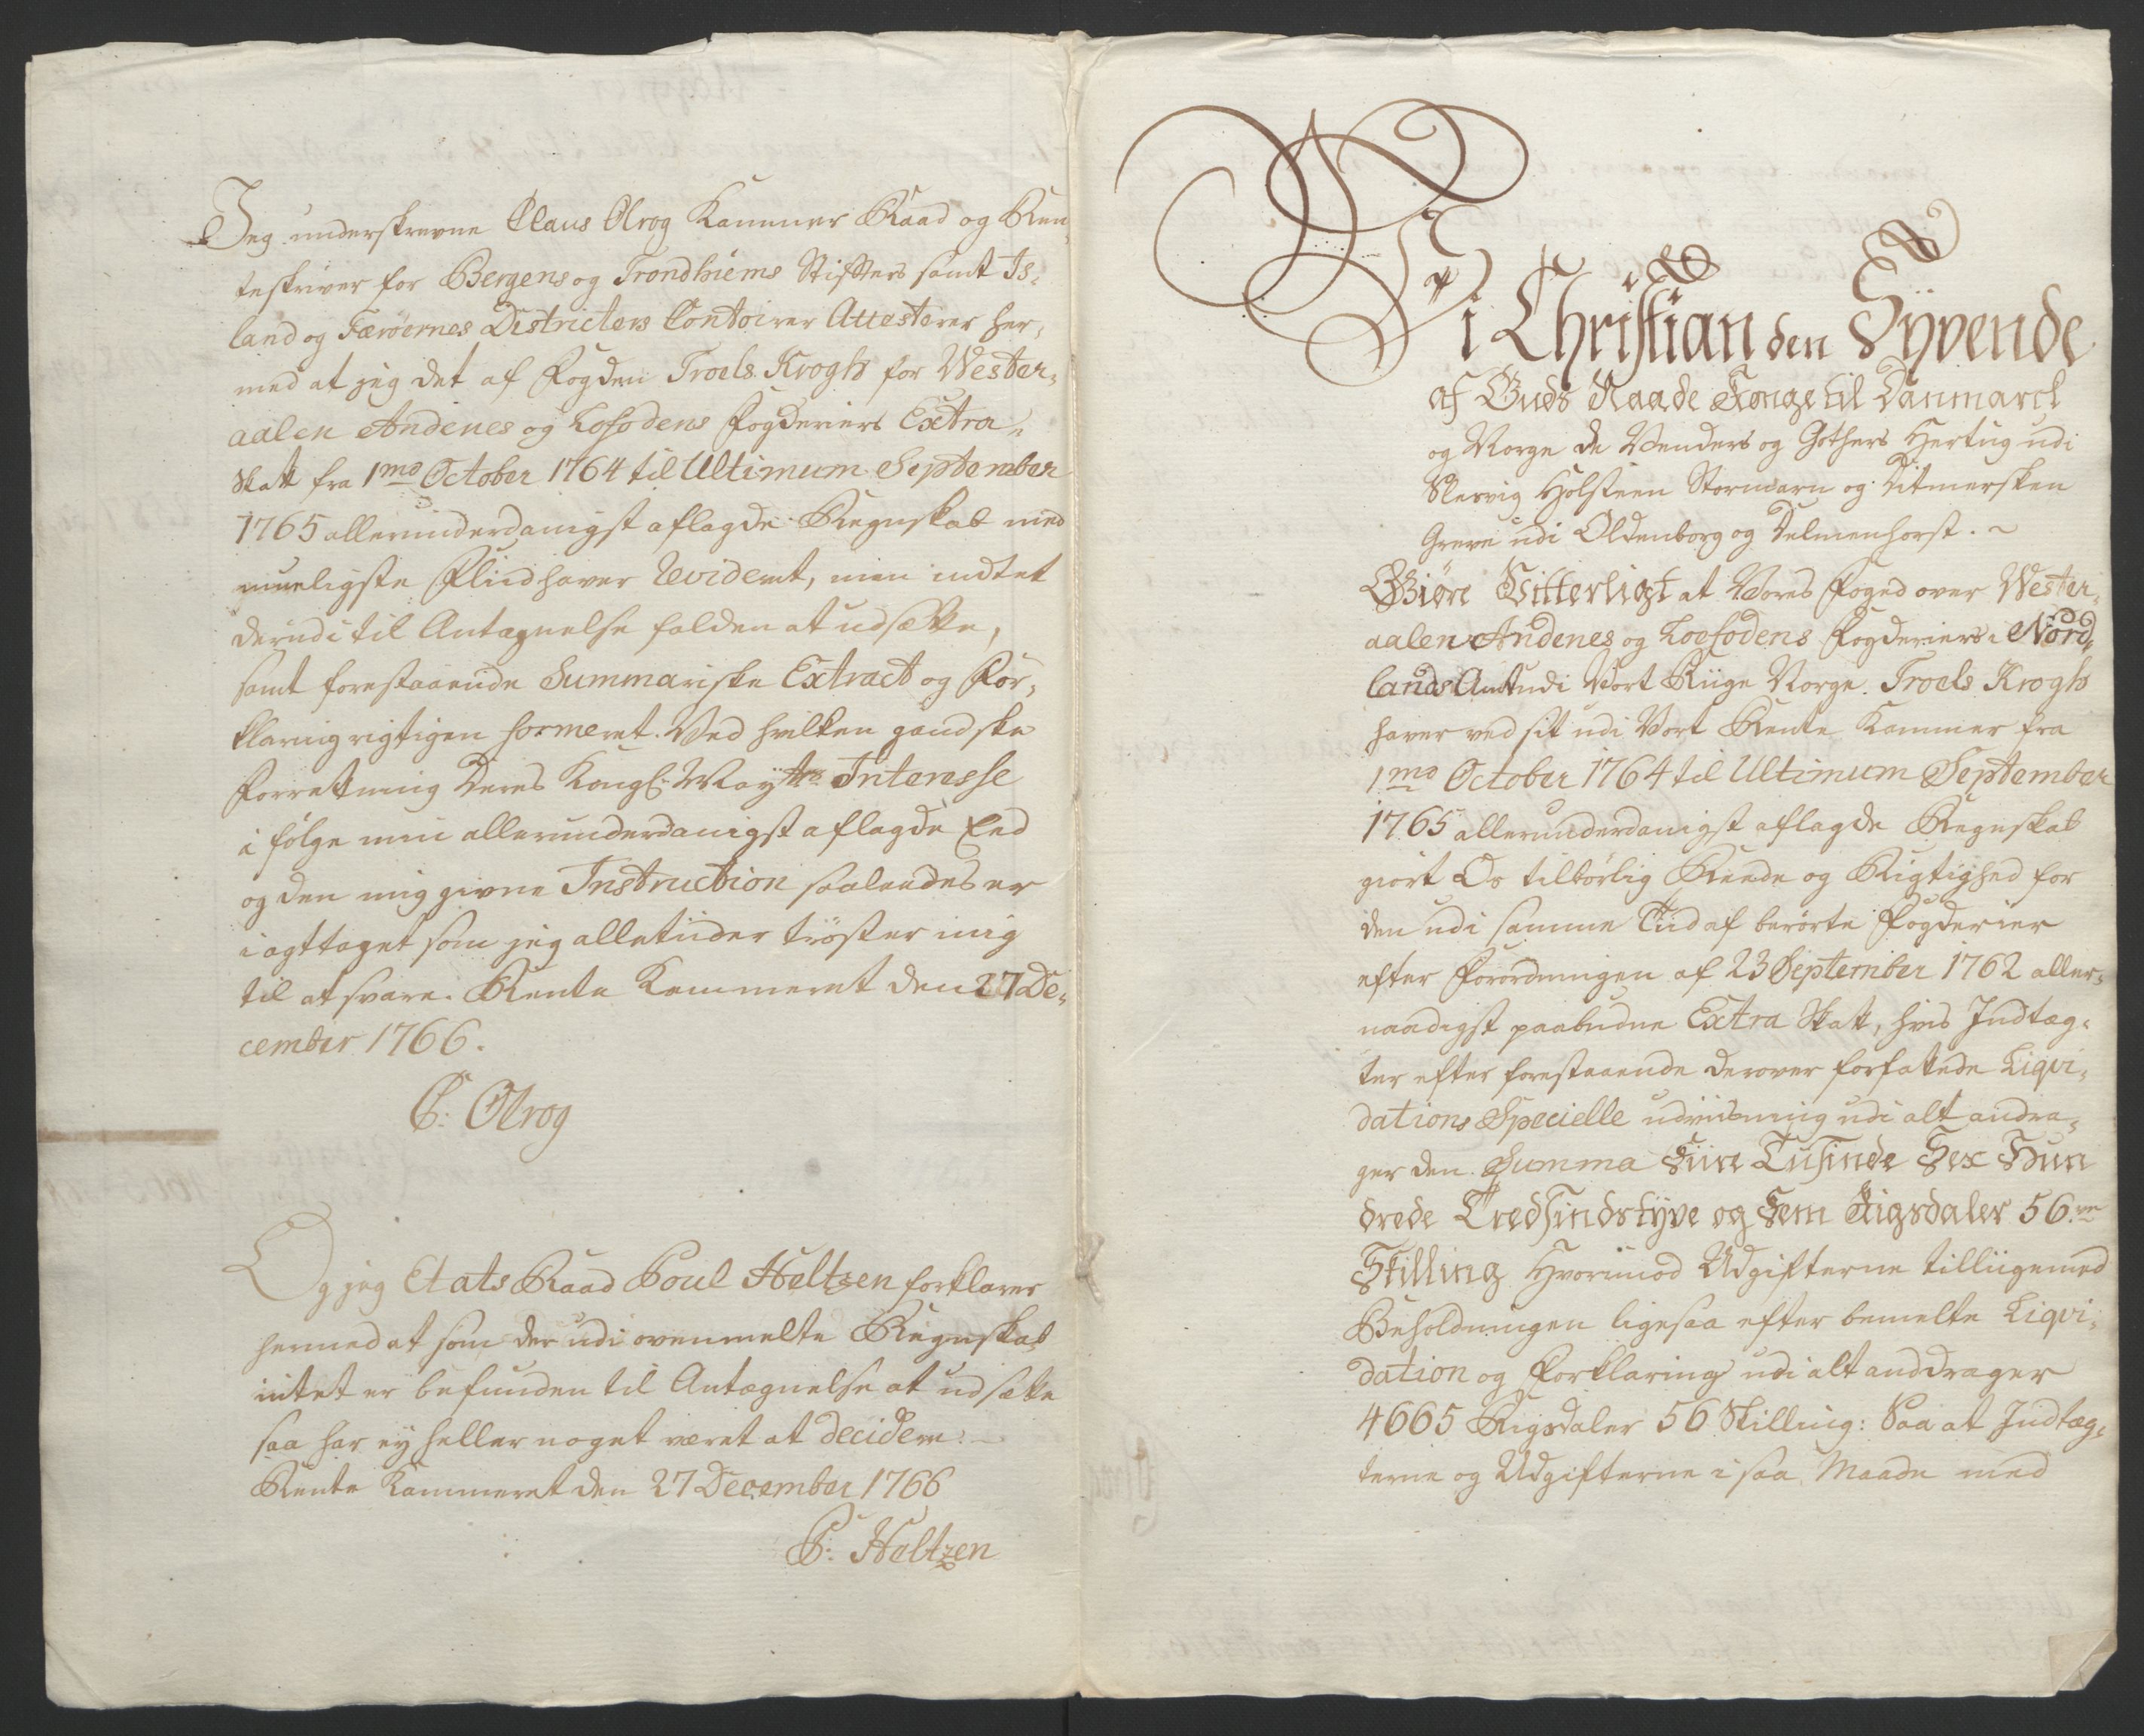 Jeg underskrevne Claus Olrog Kammer Raad og Ren-
teskriver for Bergens og Trondhiems Stifters samt Is-
land og Færøernes Districters Contoirer Attesterer her-
med at jeg det af Fogden Troels Krogh for Wester-
aalen Andenes og Lofodens Fogderiers Extra-
Skatt fra 1mo October 1764 til Ultimum September
1765 allerunderdanigst aflagde Regnskab med
mueligste Fliid haver Revideret, men indtet
derudi til Antægnelse falden at udsætte,
samt forestaaende Summariske Extract og For-
klaring rigtigen formeret. Ved hvilken gandske
Forretning Deres Kongl: Mayts Interesse
i følge min allerunderdanigst aflagde Eed
og den mig givne Instruction saaledes er
i agttaget som jeg alletiider trøster mig
til at svare. Rente Kammeret den 27 De-
cember 1766.
C: Olrog
Og jeg Etats Raad Poul Heltzen forklarer
hermed at som der udi ovenmelte Regnskab
intet er befunden til Antægnelse at udsætte
saa har ey heller noget været at decidere.
Rente Kammeret den 27 December 1766
P: Heltzen
Vi Christian den Syvende
af Guds Naade Konge til Danmarck
og Norge de Venders og Gothers Hertug udi
Slesvig Holsteen Stormarn og Ditmersken
Greve udi Oldenborg og Delmenhorst.
Giøre Vitterligt at Vores Foged over Wester-
aalen Andenes og Loefodens Fogderier i Nord-
lands Amt udi Vort Riige Norge Troels Krogh
haver ved sit udi Vort Rente Kammer fra
1mo October 1764 til Ultimum September
1765 allerunderdanigst aflagde Regnskab
giort Os tilbørlig Reede og Rigtighed for
den udi samme Tiid af berørte Fogderier
efter Forordningen af 23 September 1762 aller-
naadigst paabudne Extra Skatt, hvis Indtæg-
ter efter forestaaende derover forfattede Liqvi-
dations Specielle udviisning udi alt andra-
ger den Summa Fiire Tusinde Sex Hun
drede Tredsindstyve og Fem Rigsdaler 56 re
Skilling Hvorimod Udgifterne tilliigemed
Beholdningen ligesaa efter bemelte Liqvi-
dation og Forklaring udi alt anddrager
4665 Rigsdaler 56 Skilling: Saa at Indtæg-
terne og Udgifterne i saa Maade med